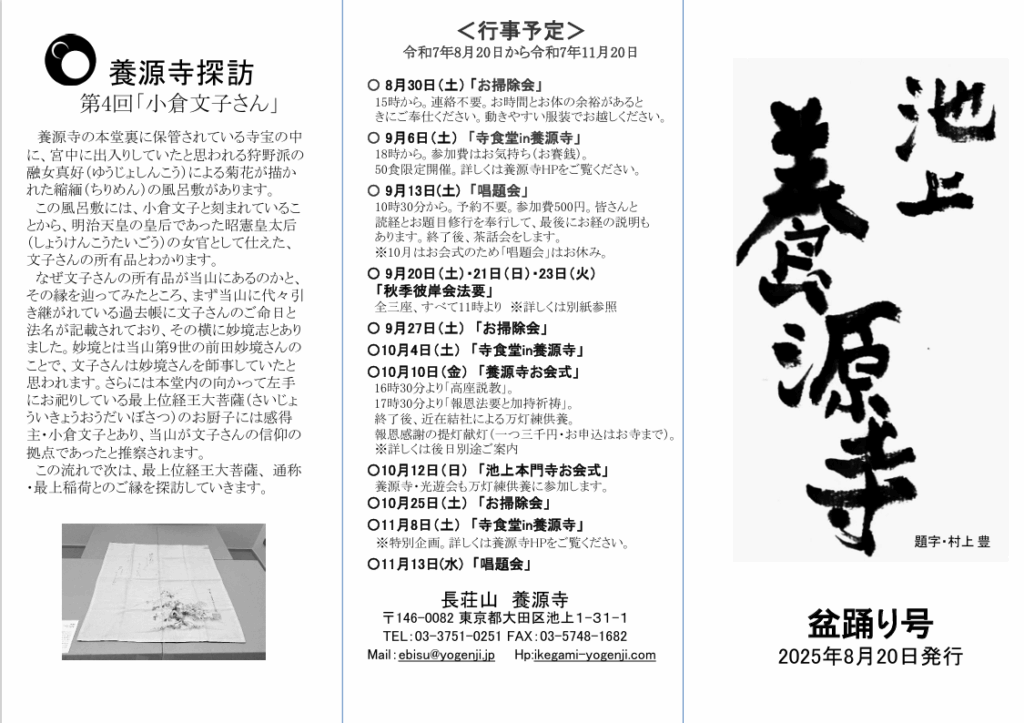 養源寺探訪
第4回「小倉文子さん」
養源寺の本堂裏に保管されている寺宝の中
に、宮中に出入りしていたと思われる狩野派の
融女真好（ゆうじょしんこう）による菊花が描か
れた縮緬（ちりめん）の風呂敷があります。
この風呂敷には、小倉文子と刻まれているこ
とから、明治天皇の皇后であった昭憲皇太后
（しょうけんこうたいごう）の女官として仕えた、
文子さんの所有品とわかります。
なぜ文子さんの所有品が当山にあるのかと、
その縁を辿ってみたところ、まず当山に代々引
き継がれている過去帳に文子さんのご命日と
法名が記載されており、その横に妙境志とあり
ました。妙境とは当山第9世の前田妙境さんの
ことで、文子さんは妙境さんを師事していたと
思われます。さらには本堂内の向かって左手
にお祀りしている最上位経王大菩薩（さいじょ
ういきょうおうだいぼさつ）のお厨子には感得
主・小倉文子とあり、当山が文子さんの信仰の
拠点であったと推察されます。
この流れで次は、最上位経王大菩薩、通称
・最上稲荷とのご縁を探訪していきます。
＜行事予定＞
令和7年8月20日から令和7年11月20日
〇 8月30日（土）「お掃除会」
15時から。連絡不要。お時間とお体の余裕があると
きにご奉仕ください。動きやすい服装でお越しください。
〇 9月6日（土）「寺食堂in養源寺」
18時から。参加費はお気持ち（お賽銭）。
50食限定開催。詳しくは養源寺HPをご覧ください。
〇 9月13日（土）「唱題会」
10時30分から。予約不要。参加費500円。皆さんと
読経とお題目修行を奉行して、最後にお経の説明も
あります。終了後、茶話会をします。
※10月はお会式のため「唱題会」はお休み。
〇 9月20日（土）・21日（日）・23日（火）
「秋季彼岸会法要」
全三座、すべて11時より ※詳しくは別紙参照
〇 9月27日（土）「お掃除会」
〇10月4日（土）「寺食堂in養源寺」
〇10月10日（金）「養源寺お会式」
16時30分より「高座説教」。
17時30分より「報恩法要と加持祈祷」。
終了後、近在結社による万灯練供養。
報恩感謝の提灯献灯（一つ三千円・お申込はお寺まで）。
※詳しくは後日別途ご案内
〇10月12日（日）「池上本門寺お会式」
養源寺・光遊会も万灯練供養に参加します。
〇10月25日（土）「お掃除会」
〇11月8日（土）「寺食堂in養源寺」
※特別企画。詳しくは養源寺HPをご覧ください。
〇11月13日(水)「唱題会」
長荘山 養源寺
〒146-0082 東京都大田区池上1-31-1
TEL：03-3751-0251 FAX：03-5748-1682
Mail：ebisu@yogenji.jp Hp:ikegami-yogenji.com
池上
養源寺
題字・村上 豊
盆踊り号
2025年8月20日発行